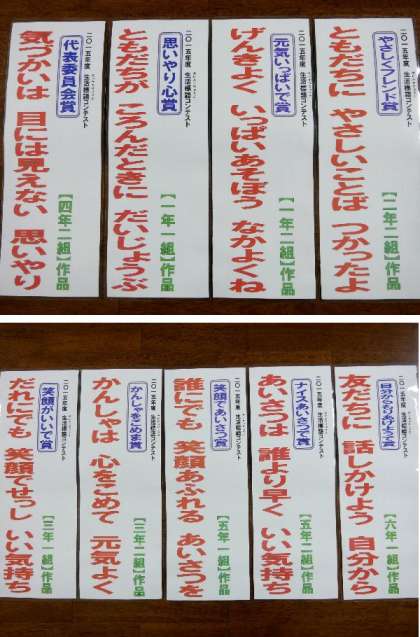 二〇一五年度 生活標語コンテスト
やさしくフレンド賞
ともだちに やさしいことば つかったよ
【二年二組】作品
二〇一五年度 生活標語コンテスト
元気いっぱいで賞
げんきよく いっぱいあそぼう なかよくね
【一年二組】作品
二〇一五年度 生活標語コンテスト
思いやり心賞
ともだちが ころんだときに だいじょうぶ
【一年一組】作品
二〇一五年度 生活標語コンテスト
代表委員会賞
気づかいは 目には見えない 思いやり
【四年二組】作品
二〇一五年度 生活標語コンテスト
自分からもりあげよう賞
友だちに 話しかけよう 自分から
【六年一組】作品
二〇一五年度 生活標語コンテスト
ナイスあいさつで賞
あいさつは 誰より早く いい気持ち
【五年二組】作品
二〇一五年度 生活標語コンテスト
笑顔であいさつ賞
誰にでも 笑顔あふれる あいさつを
【五年一組】作品
二〇一五年度 生活標語コンテスト
かんしゃをこめま賞
かんしゃは 心をこめて 元気よく
【三年二組】作品
二〇一五年度 生活標語コンテスト
笑顔がいいで賞
だれにでも 笑顔でせっし いい気持ち
【三年一組】作品